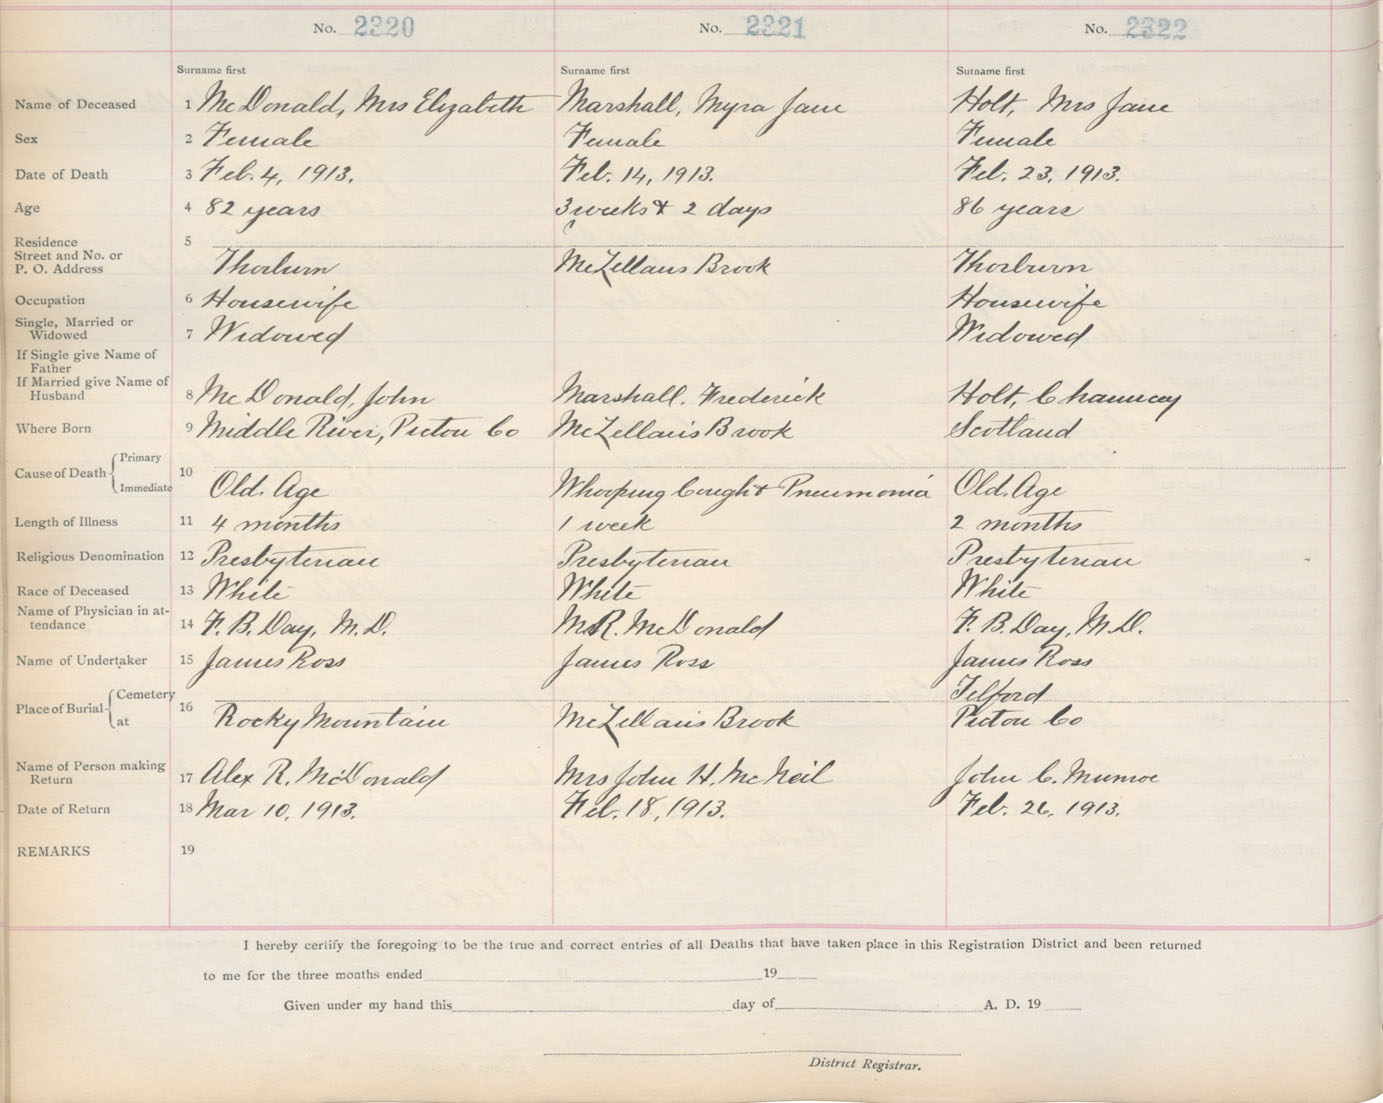 No. 2320 No. 2321 No. 2322
Surname first Surname first Surname first
Name of Deceased 1 McDonald, Mrs Elizabeth Marshall, Myra Jane Holt, Mrs Jane
Sex 2 Female Female Female
Date of Death 3 Feb. 4, 1913. Feb. 14, 1913. Feb. 23, 1913.
Age 4 82 years 3 weeks & 2 days 86 years
Residence 5
Street and No. or
P. O. Address Thorburn McLellans Brook Thorburn
Occupation 6 Housewife Housewife
Single, Married or
Widowed 7 Widowed Widowed
If Single give Name of
Father
If Married give Name of
Husband 8 McDonald, John Marshall. Frederick Holt, Chauncey
Where Born 9 Middle River, Pictou Co McLellan's Brook Scotland
Cause of Death Primary 10
Immediate Old. Age Whooping Cough & Pneumonia Old. Age
Length of Illness 11 4 months 1 week 2 months
Religious Denomination 12 Presbyterian Presbyterian Presbyterian
Race of Deceased 13 White White White
Name of Physician in at-
tendance 14 F. B. Day, M.D. R. McDonald F. B. Day, M.D.
Name of Undertaker 15 James Ross James Ross James Ross
Place of Burial Cemetery 16 Telford
at Rocky Mountain McLellan's Brook Pictou Co
Name of Person making
Return 17 Alex R. McDonald Mrs John H. McNeil John C. Munroe
Date of Return 18 Mar 10, 1913. Feb. 18, 1913. Feb. 26, 1913.
REMARKS 19
I hereby certify the foregoing to be the true and correct entries of all Deaths that have taken place in this Registration District and been returned
to me for the three months ended 19
Given under my hand this day of A. D. 19
District Registrar.